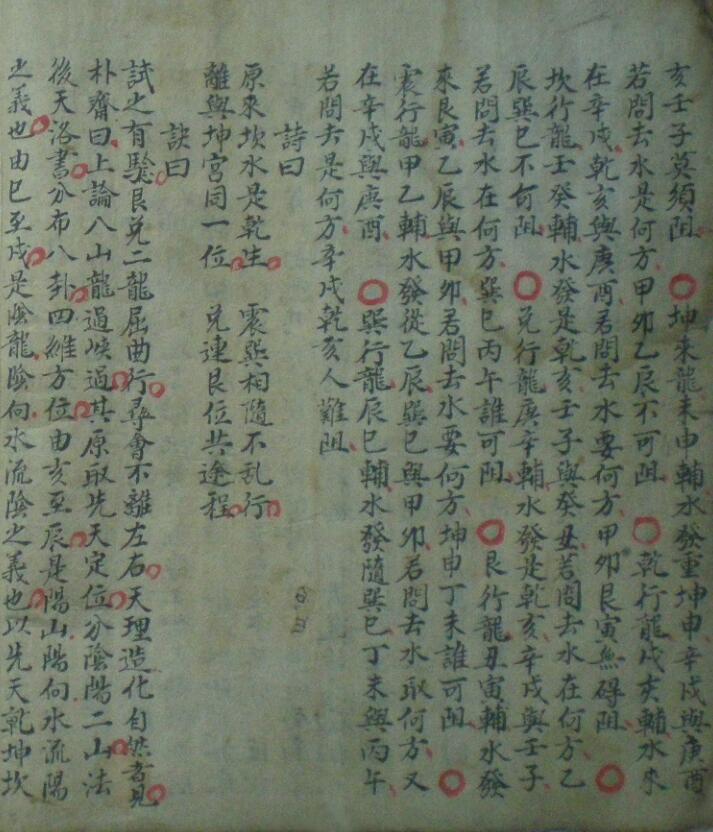 亥壬子莫須阻　坤来龍未申輔水發重坤申辛戌與庚酉
若問去水是何方甲卯乙辰不可阻　乾行龍戌亥輔水來
在辛戌乾亥與庚酉君問去水要何方甲卯艮寅無碍阻
坎行龍壬癸輔水發是乾亥壬子與癸丑若問去水在何方乙
辰巽巳不何阻　兌行龍庚辛輔水發是乾亥辛戌與壬子
若問去水在何方巽巳丙午誰可阻　艮行龍丑寅輔水發
來艮寅乙辰與甲卯君問去水要何方坤申丁未誰可阻
震行龍甲乙輔水發從乙辰巽巳與甲卯君問去水取何方又
在辛戌與庚酉　巽行龍辰巳輔水發隨巽巳丁未與丙午
若問去是何方辛戌乾亥人難阻
詩曰
原來坎水是乾生　震巽相隨不乱行
離與坤宮同一位　兌連艮位共途程
訣曰
試之有驗艮兌二龍屈曲行尋會不離左右天理造化自然者見
朴齋曰上論八山龍過峽過其原取先天定位分陰陽二山法
後天洛書分布八卦四維方位由亥至辰是陽山陽向水流陽
之義也由巳至戌是陰龍陰向水流陰之義也以先天乾坤坎